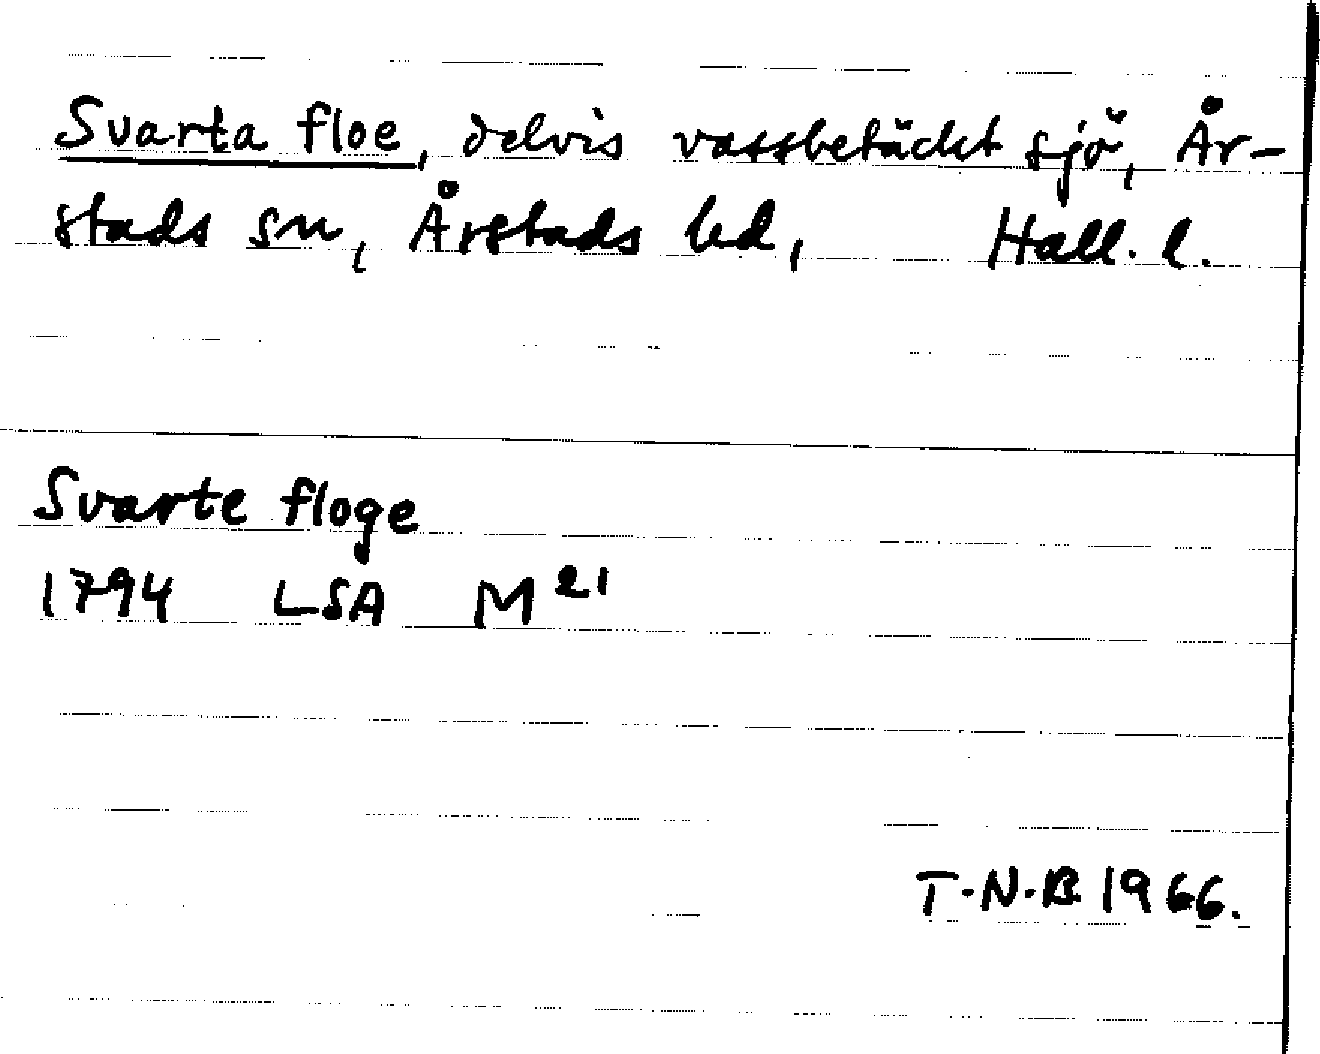 Svarta floe, delvis vassbetäckt sjö, År-
stads sn, Årstads hd, Hall. l.
Svarte floge
1794 LSA M 21
T.N.B 1966.